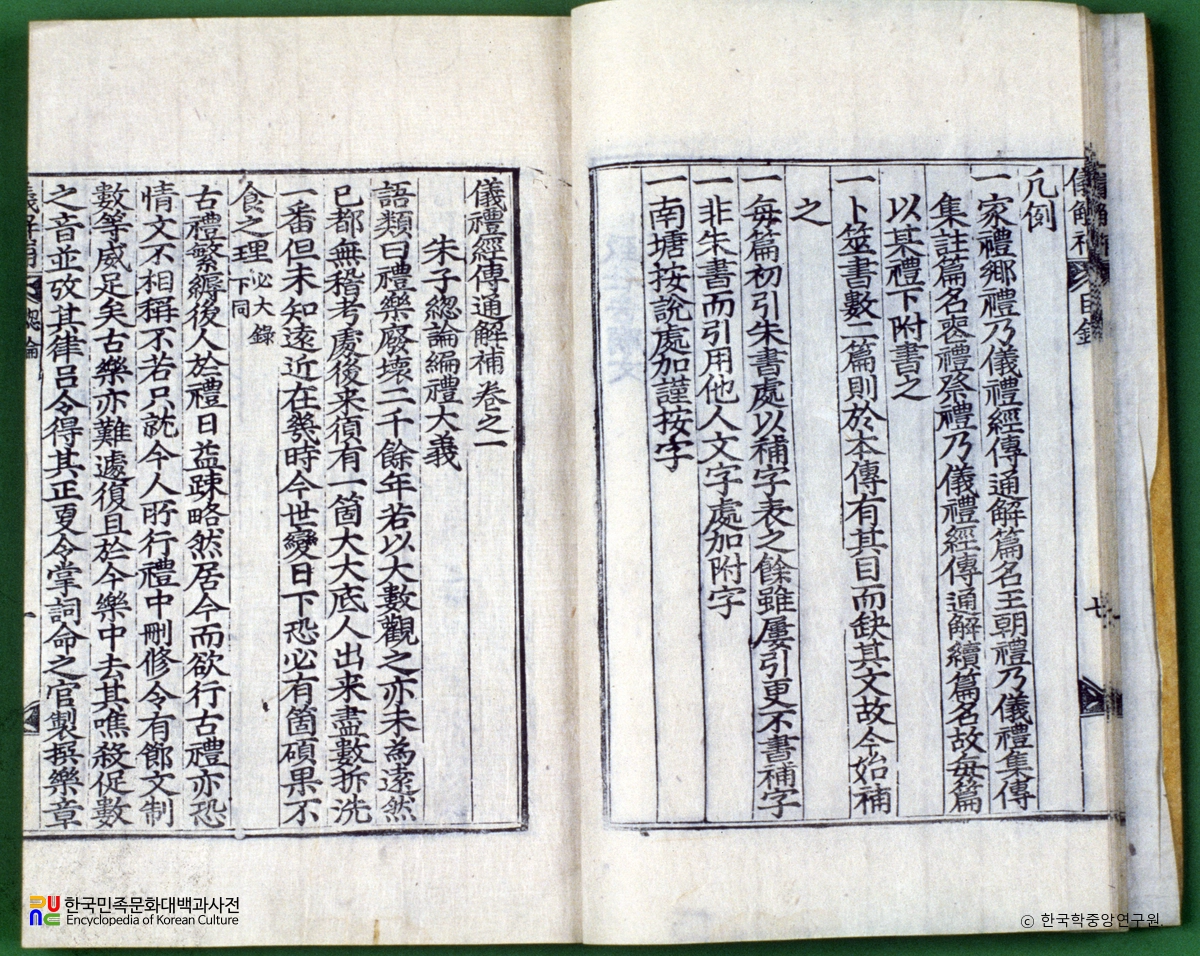 凡例
一家禮鄉禮乃儀禮經傳通解篇名王朝禮乃儀禮集傳
集註篇名喪禮祭禮乃儀禮經傳通解續篇名故每篇
以某禮下附書之
一卜筮書數二篇則於本傳有其目而缺其文故今始補
之
一每篇初引朱書處以補字表之餘雖屢引更不書補字
一非朱書而引用他人文字處加附字
一南塘按說處加謹按字
儀禮經傳通解補卷之一
朱子緫論編禮大義
語類曰禮樂廢壞二千餘年若以大數觀之亦未為遠然
已都無稽考處後来須有一箇大大底人出来盡數拆洗
一番但未知遠近在幾時今世變日下恐必有箇碩果不
食之理必大錄下同
古禮繁縟後人於禮日益踈略然居今而欲行古禮亦恐
情文不相稱不若只就今人所行禮中刪修令有節文制
數等威足矣古樂亦難遽復且於今樂中去其噍殺促數
之音並攷其律呂令得其正更令掌詞命之官製撰樂章
한국민족문화대백과사전
Encyclopedia of Korean Culture
ⓒ 한국학중앙연구원